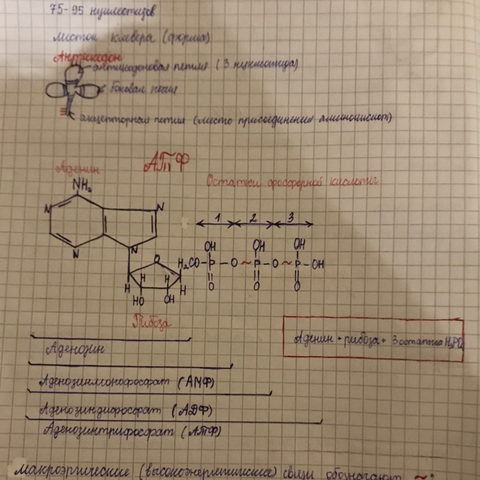 75-95 нуклеотидов
листок клевера (форма)
Антикодон
антикодоновая петля (3 нуклеотида)
боковая петля
акцепторная петля (место присоединения аминокислот)
АТФ
Аденин
Остатки фосфорной кислоты
NH₂
1 2 3
N N
OH OH OH
N N
O H₂CO-P-O~P-O~P-OH
H H H H
O O O
HO OH
Рибоза
Аденин + рибоза + 3 остатка H₃PO₄
Аденозин
Аденозинмонофосфат (АМФ)
Аденозиндифосфат (АДФ)
Аденозинтрифосфат (АТФ)
макроэргические (высокоэнергетические) связи обозначают ~